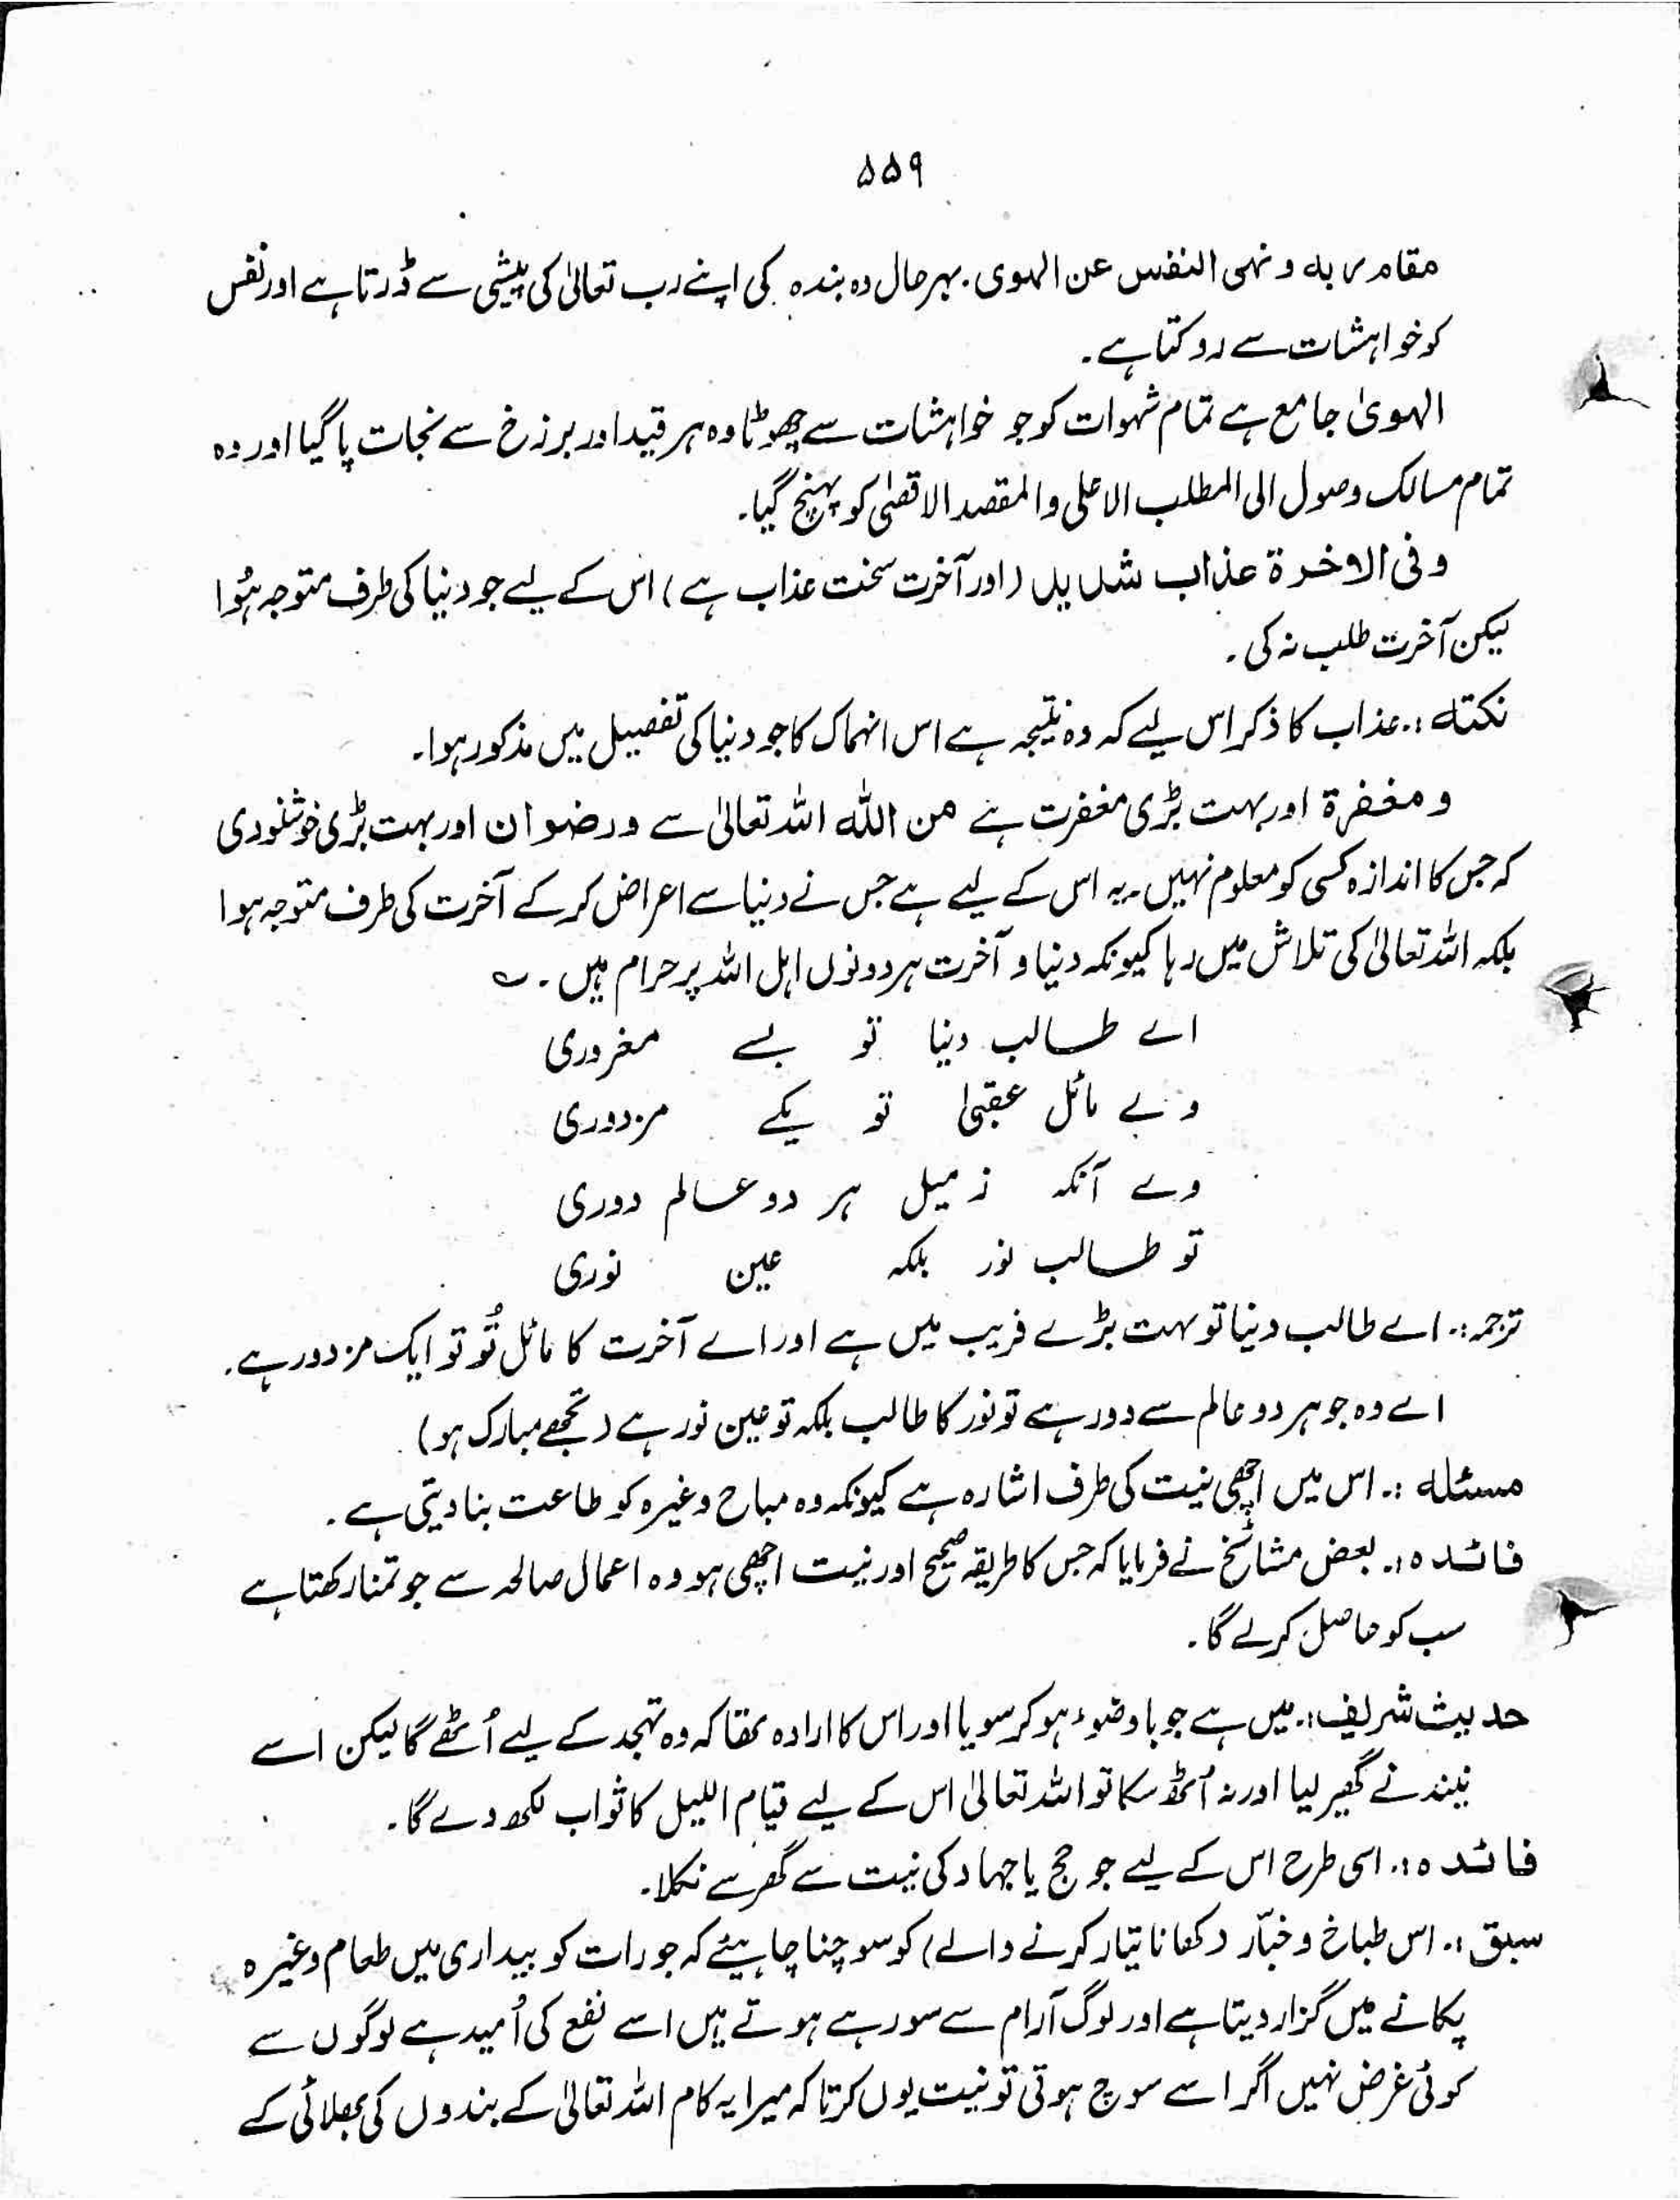 ۵۵۹
مقام ربه و نهی النفس عن الهوی. بہرحال وہ بندہ کی اپنے رب تعالیٰ کی پیشی سے ڈرتا ہے اور نفس
کو خواہشات سے روکتا ہے۔
الہویٰ جامع ہے تمام شہوات کو جو خواہشات سے چھوٹا وہ ہر قید اور برزخ سے نجات پا گیا اور وہ
تمام مسالک وصول الی المطلب الاعلی والمقصد الاقصیٰ کو پہنچ گیا۔
و فی الاخرة عذاب شدید (اور آخرت سخت عذاب ہے) اس کے لیے جو دنیا کی طرف متوجہ ہُوا
لیکن آخرت طلب نہ کی۔
نکتہ :۔ عذاب کا ذکر اس لیے کہ وہ نتیجہ ہے اس انہماک کا جو دنیا کی تفصیل میں مذکور ہوا۔
و مغفرة اور بہت بڑی مغفرت ہے من اللہ اللہ تعالیٰ سے و رضوان اور بہت بڑی خوشنودی
کہ جس کا اندازہ کسی کو معلوم نہیں۔ یہ اس کے لیے ہے جس نے دنیا سے اعراض کر کے آخرت کی طرف متوجہ ہوا
بلکہ اللہ تعالیٰ کی تلاش میں رہا کیونکہ دنیا و آخرت ہر دونوں اہل اللہ پر حرام ہیں۔ ؎
اے طالب دنیا تو بسے مغروری
وے مائل عقبیٰ تو یکے مزدوری
وے آنکہ ز میل ہر دو عالم دوری
تو طالب نور بلکہ عین نوری
ترجمہ :۔ اے طالب دنیا تو بہت بڑے فریب میں ہے اور اے آخرت کا مائل تُو تو ایک مزدور ہے۔
اے وہ جو ہر دو عالم سے دور ہے تو نور کا طالب بلکہ تو عین نور ہے (تجھے مبارک ہو)
مسئلہ :۔ اس میں اچھی نیت کی طرف اشارہ ہے کیونکہ وہ مباح وغیرہ کو طاعت بنا دیتی ہے۔
فائدہ :۔ بعض مشائخ نے فرمایا کہ جس کا طریقہ صحیح اور نیت اچھی ہو وہ اعمال صالحہ سے جو تمنا رکھتا ہے
سب کو حاصل کرلے گا۔
حدیث شریف :۔ میں ہے جو باوضوء ہو کر سویا اور اس کا ارادہ تھا کہ وہ تہجد کے لیے اُٹھے گا لیکن اسے
نیند نے گھیر لیا اور نہ اُٹھ سکا تو اللہ تعالیٰ اس کے لیے قیام اللیل کا ثواب لکھ دے گا۔
فائدہ :۔ اسی طرح اس کے لیے جو حج یا جہاد کی نیت سے گھر سے نکلا۔
سبق :۔ اس طباخ و خبّاز (کھانا تیار کرنے والے) کو سوچنا چاہیئے کہ جو رات کو بیداری میں طعام وغیرہ
پکانے میں گزار دیتا ہے اور لوگ آرام سے سو رہے ہوتے ہیں اسے نفع کی اُمید ہے لوگوں سے
کوئی غرض نہیں اگر اسے سوچ ہوتی تو نیت یوں کرتا کہ میرا یہ کام اللہ تعالیٰ کے بندوں کی بھلائی کے